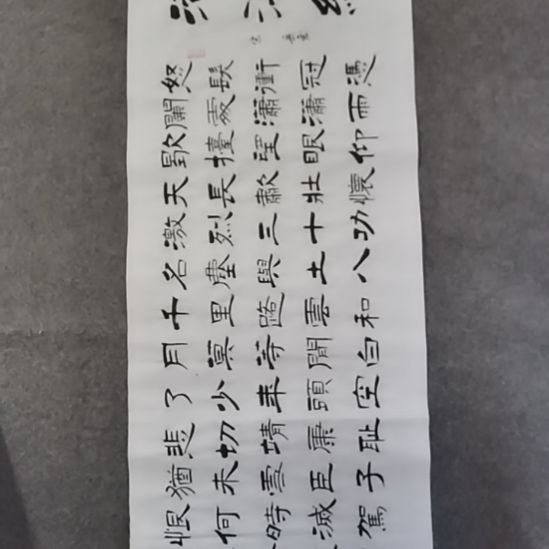 怒髮衝冠憑
闌處瀟瀟雨
歇擡望眼仰
天長歗壯懷
激烈三十功
名塵與土八
千里路雲和
月莫等閒白
了少年頭空
悲切靖康恥
猶未雪臣子
恨何時滅駕